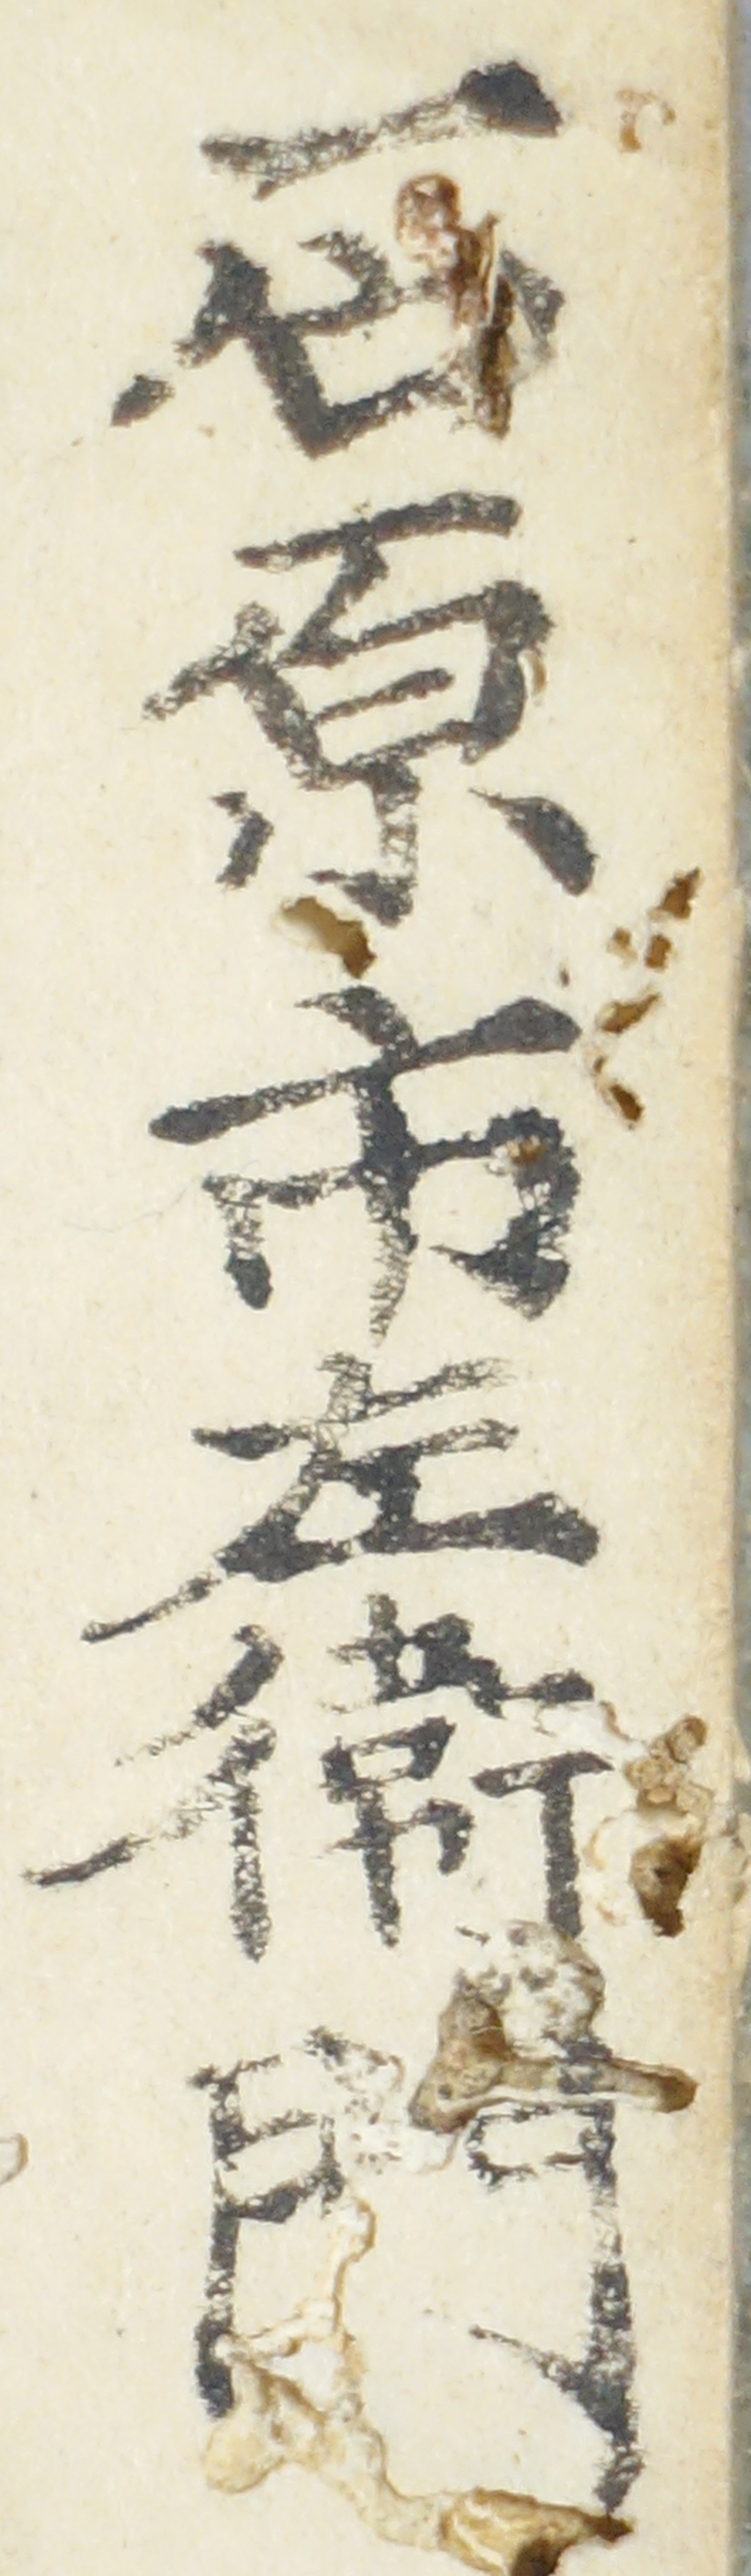 西原市左衛門